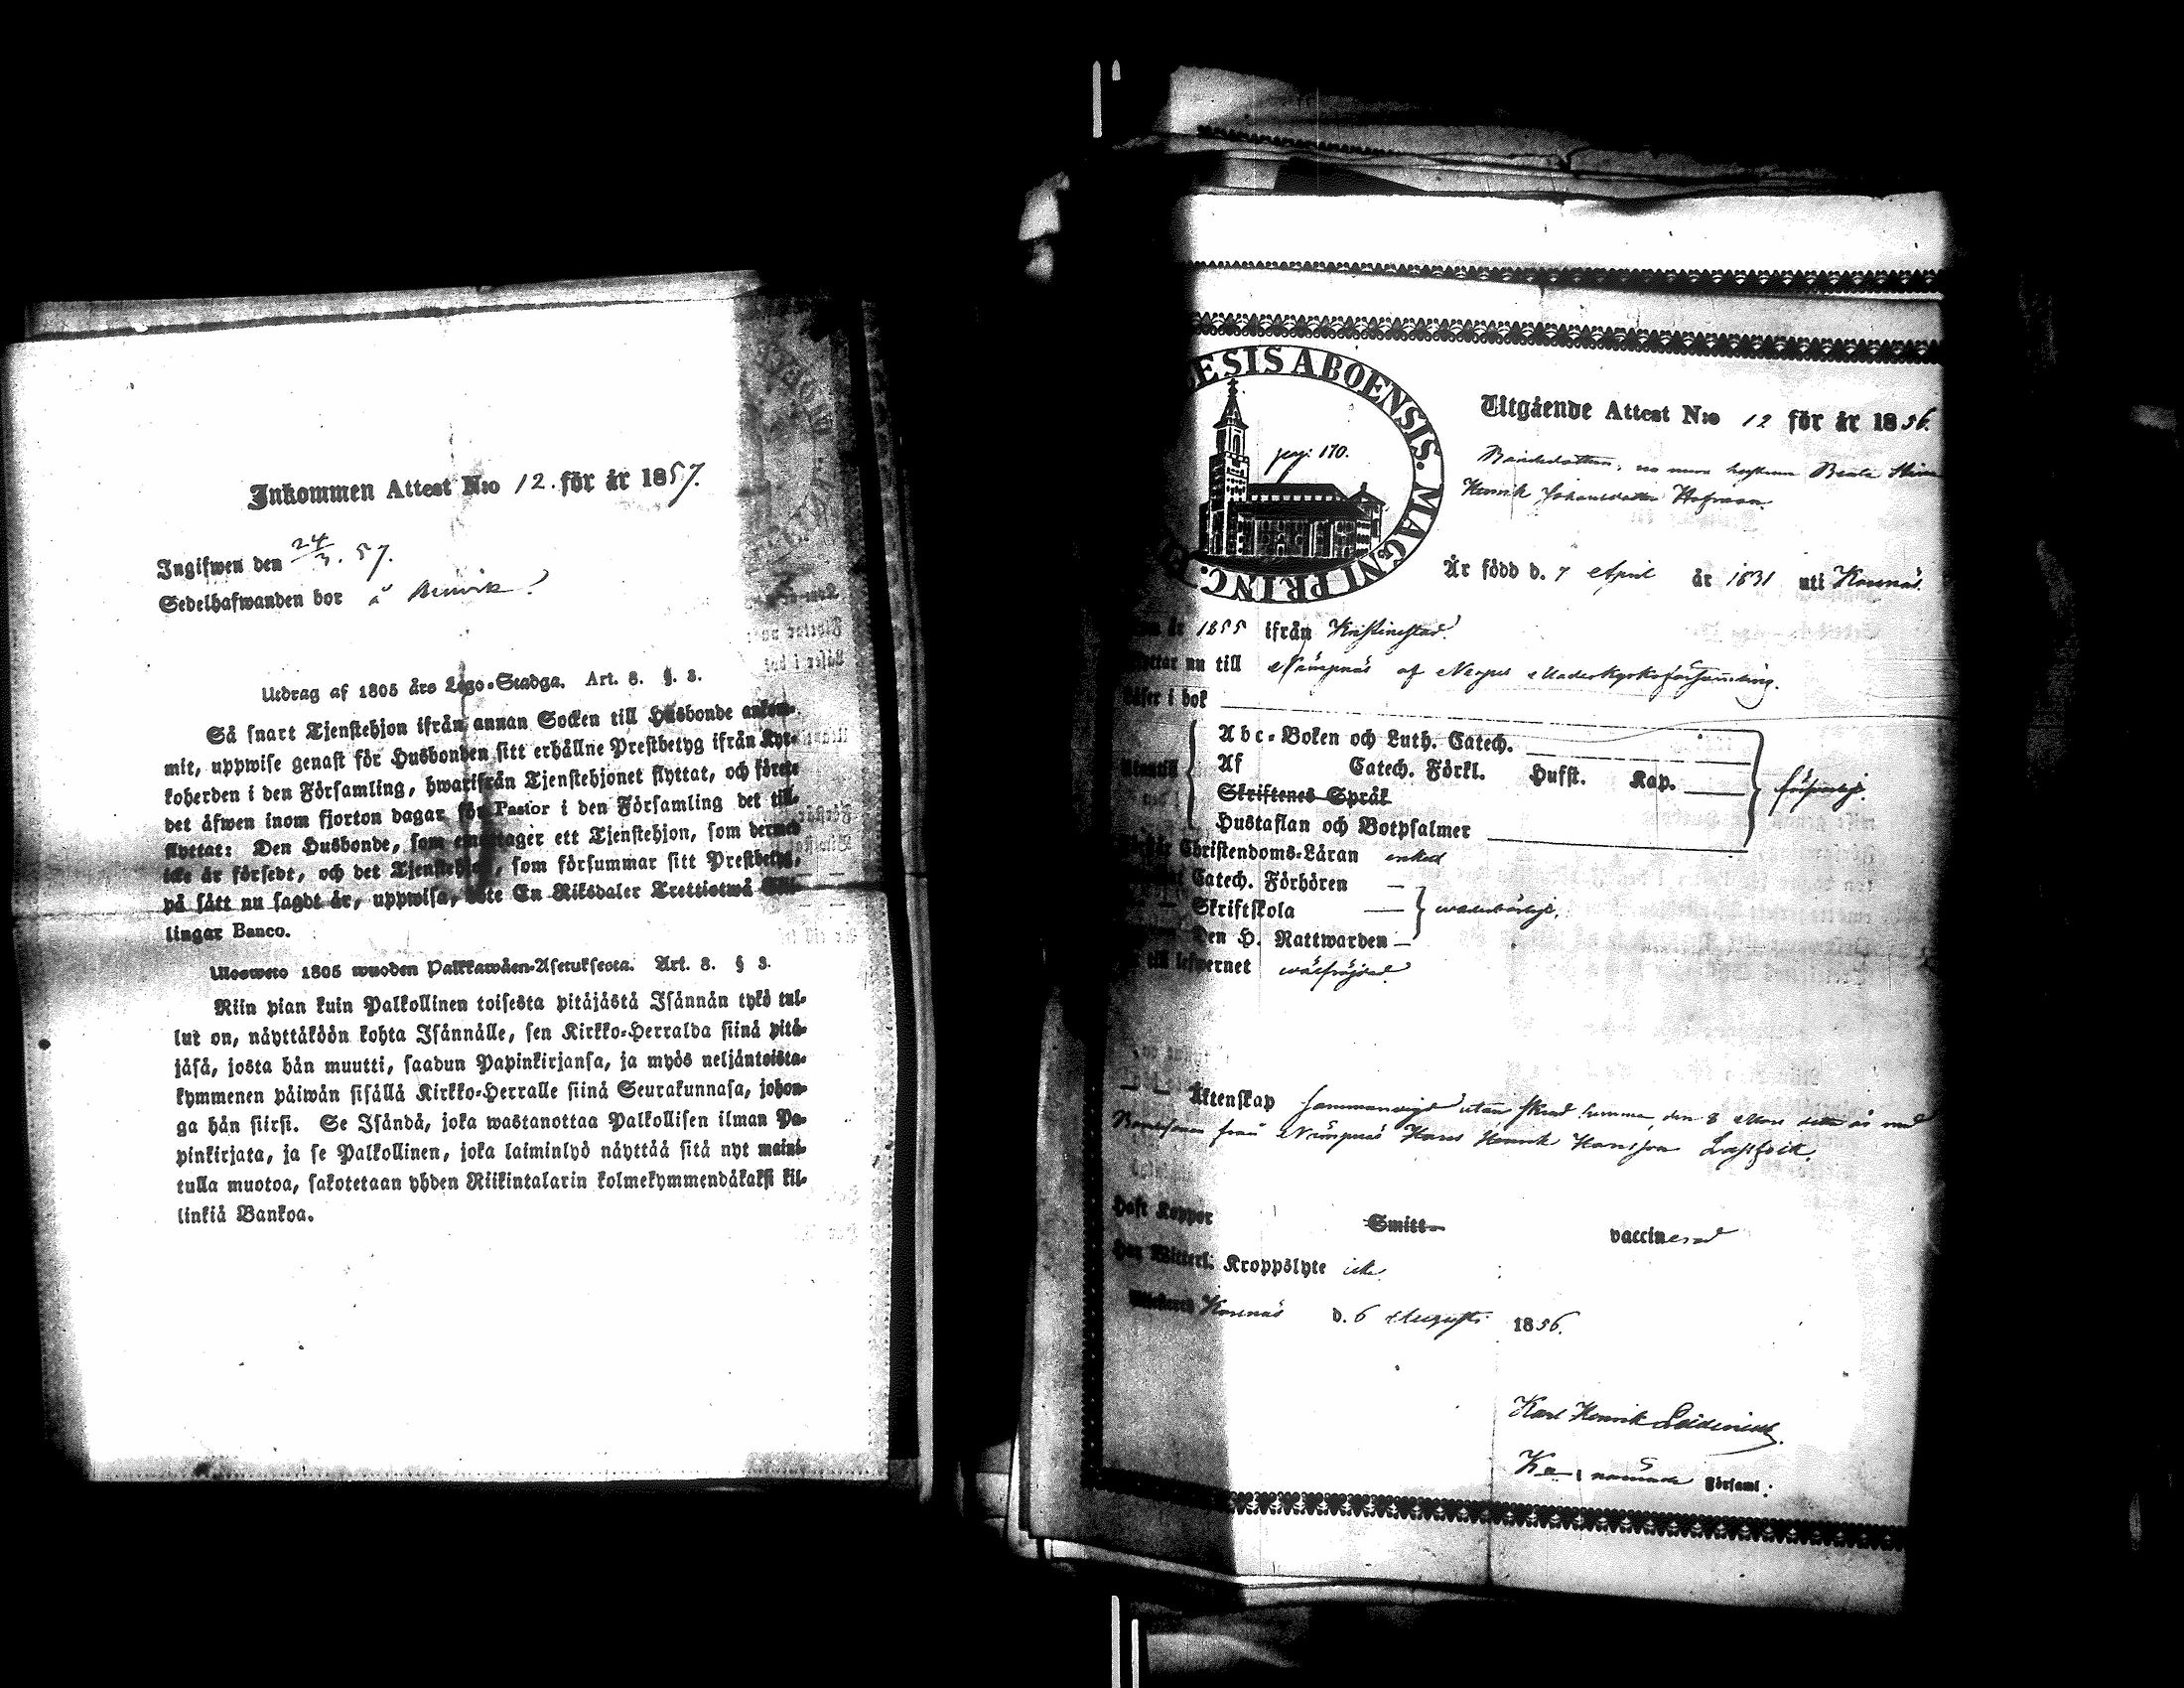 Inkommen Attest N:o 12. för år 1857.
Ingifwen den 24/3. 57.
Sedelhafwanden bor å
Utdrag af 1805 års Lego-Stadga. Art. 8. §. 3.
Så snart Tjenstehjon ifrån annan Socken till Husbonde ankom-
mit, uppwise genast för Husbonden sitt erhållne Prestbetyg ifrån Kyr-
koherden i den Församling, hwarifrån Tjenstehjonet flyttat, och förete
det äfwen inom fjorton dagar för Pastor i den Församling det till-
flyttat: Den Husbonde, som emottager ett Tjenstehjon, som dermed
icke är försedt, och det Tjenstehjon, som försummar sitt Prestbetyg,
på sätt nu sagdt är, uppwisa, böte En Riksdaler Trettiotwå Skil-
lingar Banco.
Ulosweto 1805 wuoden Palkkawäen-Asetuksesta. Art. 8. § 3.
Niin pian kuin Palkollinen toisesta pitäjästä Isännän tykö tul-
lut on, näyttäköön kohta Isännälle, sen Kirkko-Herralda siinä pitä-
jäsä, josta hän muutti, saadun Papinkirjansa, ja myös neljäntoista-
kymmenen päiwän sisällä Kirkko-Herralle siinä Seurakunnasa, johon-
ga hän siirsi. Se Isändä, joka wastanottaa Palkollisen ilman Pa-
pinkirjata, ja se Palkollinen, joka laiminlyö näyttää sitä nyt maini-
tulla muotoa, sakotetaan yhden Riikintalarin kolmekymmendäkaksi kil-
linkiä Bankoa.
ESIS ABOENSIS. MAGNI PRINC.
pag: 170.
Utgående Attest N:o 12 för år 1856.
Bondedottern, nu mera hustrun Beata Stina
Henrik Johansdotter Hofman
Är född d. 7 April år 1831 uti Korsnäs.
år 1855 ifrån Kristinestad.
nu till Nämpnäs af Nerpes Moderkyrkoförsamling.
Läser i bok
Abc-Boken och Luth. Catech.
Af Catech. Förkl. Hufst. Kap. försvarligt.
Skriftenes Språk
Hustaflan och Botpsalmer
Christendoms-Läran enkelt
Catech. Förhören —
— Skriftskola — wederbörligt.
Den H. Nattwarden —
till lefwernet wälfrejdad
— — Äktenskap Sammanvigd utan den 8 detta år med
Bondesonen från Nämpnäs Hans Henrik Hansson
Haft Koppor Smitt- vaccinerad
Har Witterl. Kroppslyte icke.
Korsnäs d. 6 Augusti 1856.
Karl Henrik
Församl: